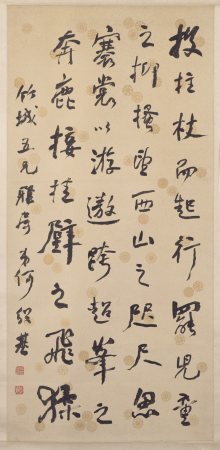 投拄杖而起行罷兒童
之抑搔望西山之咫尺欲
褰裳以游遨跨超峯之
奔鹿接挂壁之飛猱
竹城五兄雅屬 弟何紹基